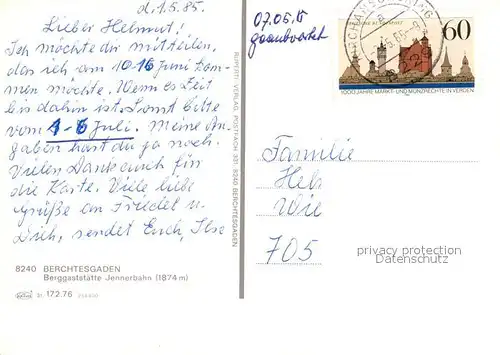 d. 1.5.85.
Lieber Helmut!
Ich möchte dir mitteilen,
das ich am 10.16 Juni kom-
men möchte. Wenn es Zeit
bis dahin ist. Sonst bitte
vom 1-6 Juli. Meine An-
gaben hast du ja noch.
Vielen Dank auch für
die Karte. Viele liebe
Grüße an Friedel u.
Dich, sendet Euch, Ilse
8240 BERCHTESGADEN
Berggaststätte Jennerbahn (1874 m)
172.76
RUPRECHT-VERLAG, POSTFACH 33, 8240 BERCHTESGADEN
07.05.
60
1000 JAHRE MARKT- UND MÜNZRECHTE IN VERDEN
Familie
Hel
Wie
705
privacy protection
Datenschutz